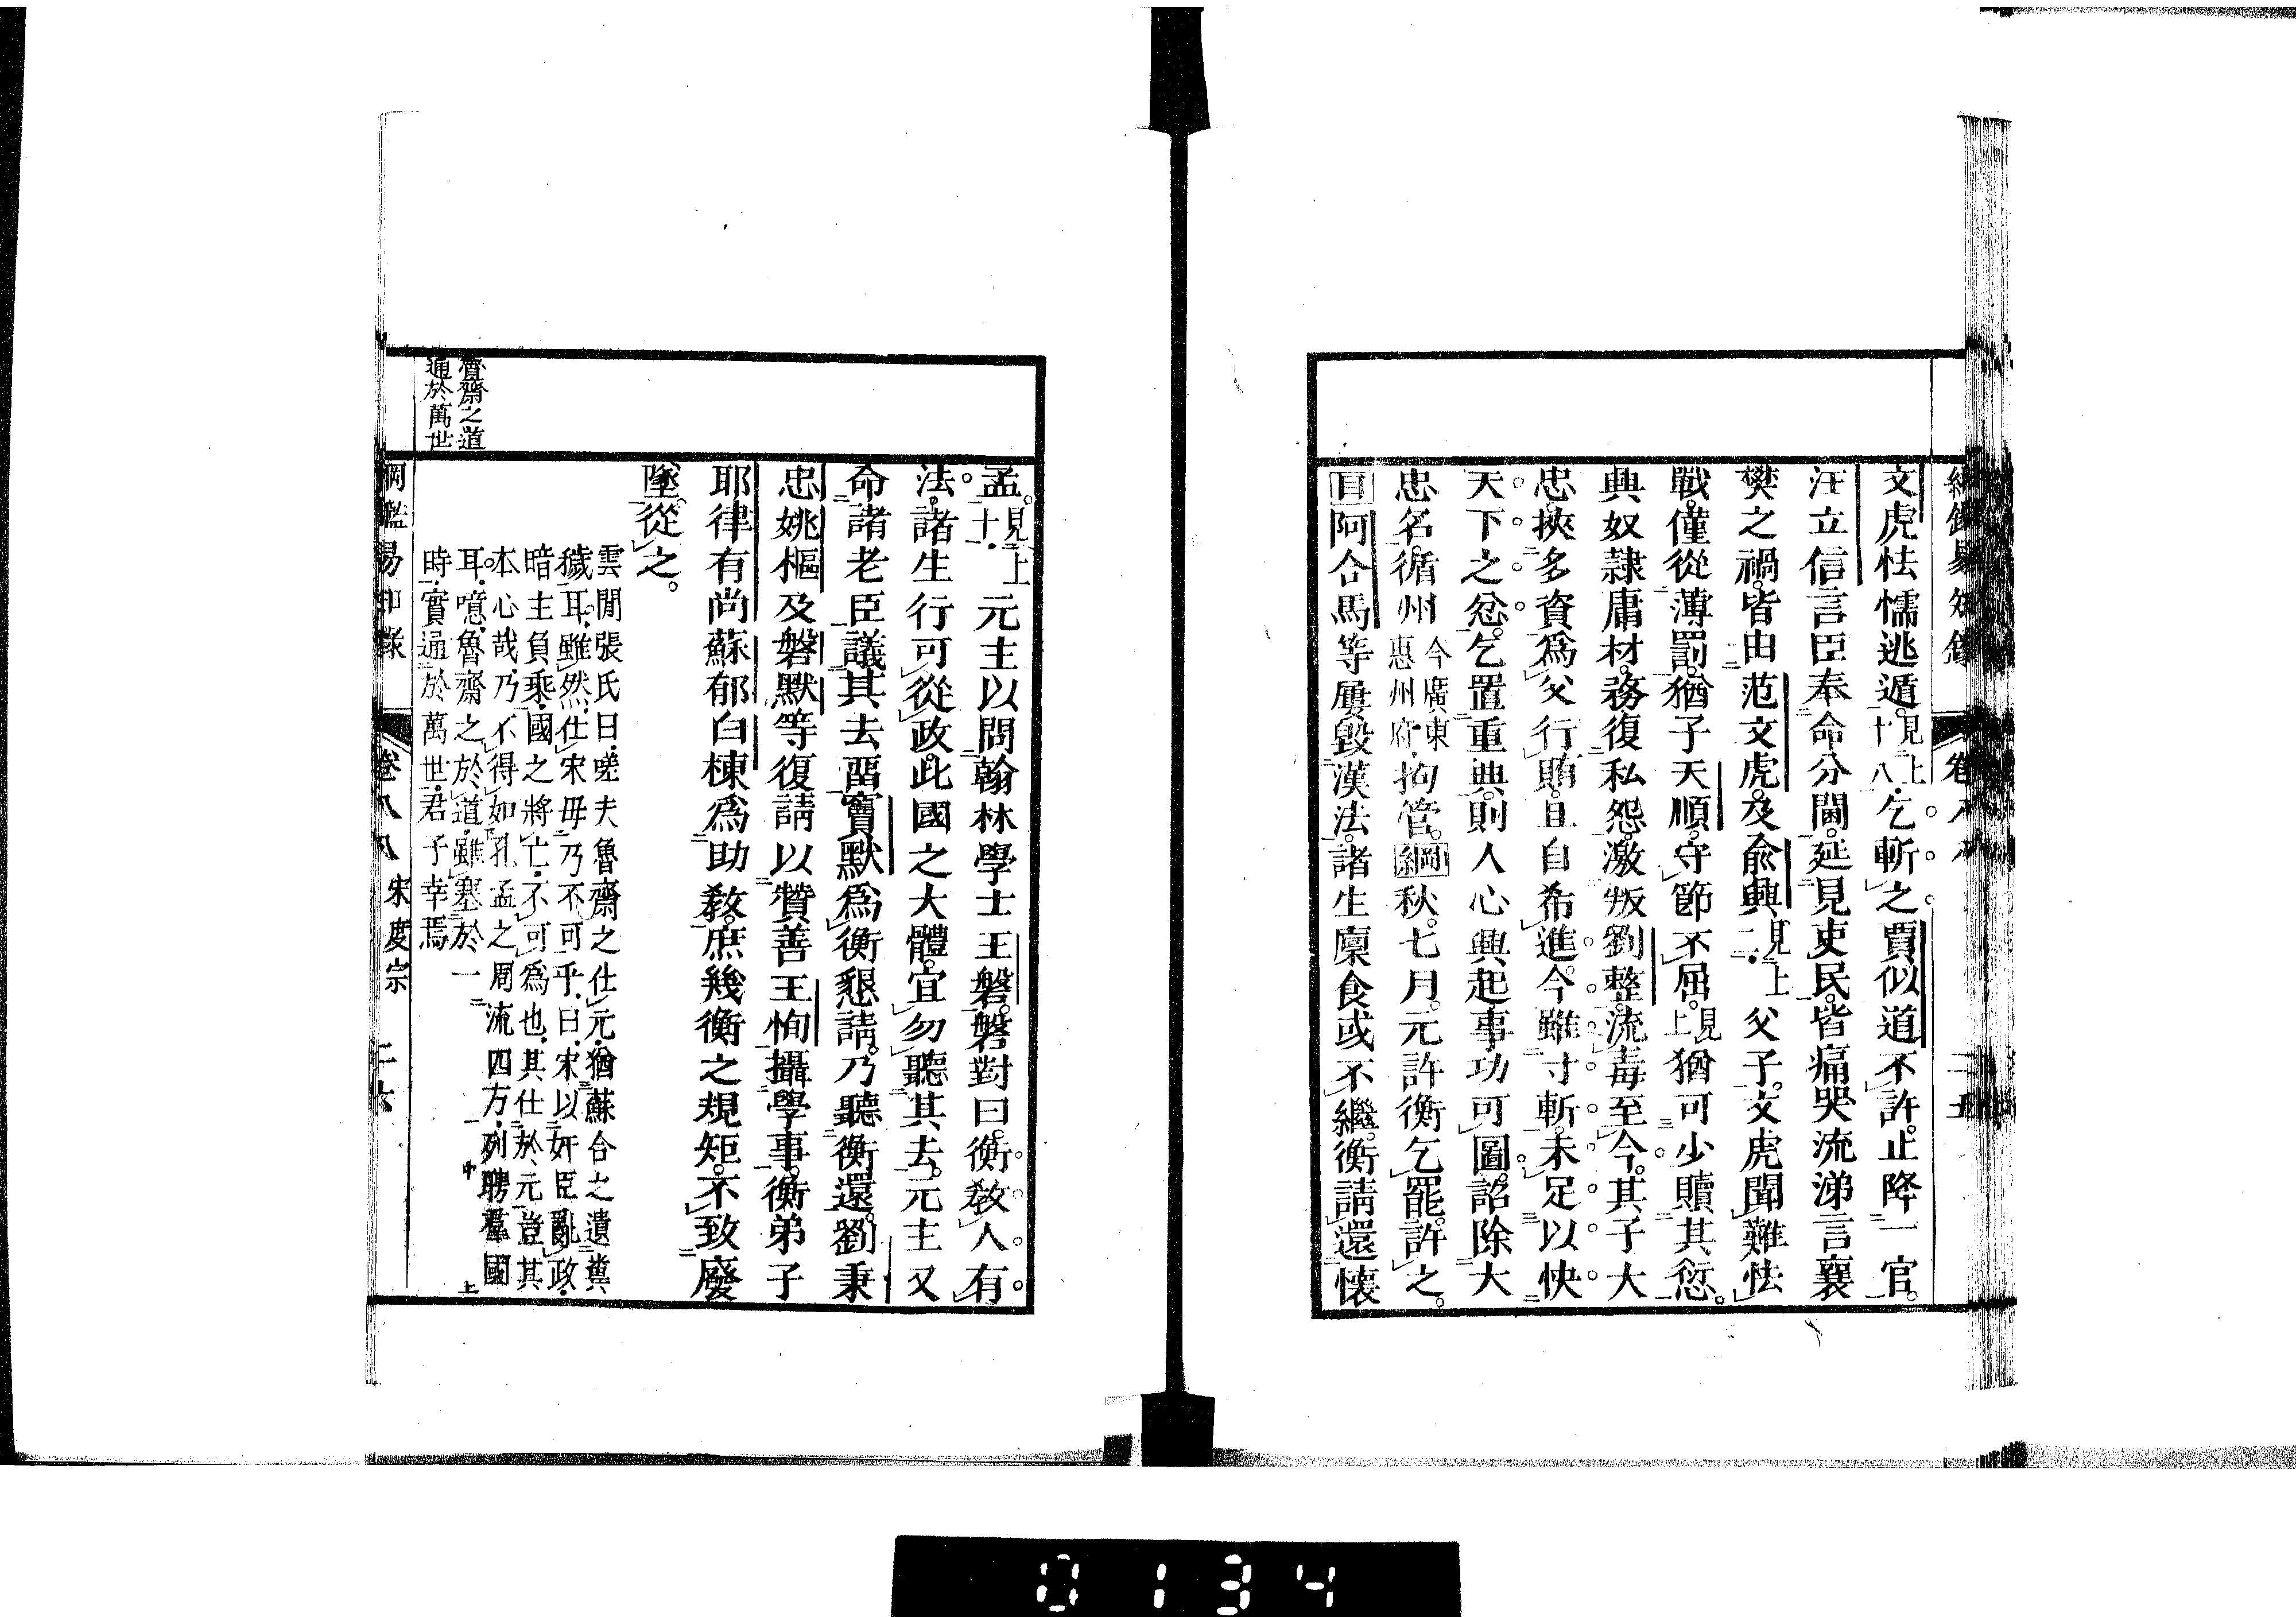 文虎怯懦逃遁。見上十八。乞斬之。賈似道不許。止降一官。
汪立信言臣奉命分閫。延見吏民。皆痛哭流涕言襄
樊之禍。皆由范文虎。及俞興見上二。父子。文虎聞難怯
戰。僅從薄罰。猶子天順。守節不屈。見上猶可少贖其愆。
興奴隸庸材。務復私怨。激叛劉整。流毒至今。其子大
忠。挾多資爲父行賄。且自希進。今雖寸斬。未足以快
天下之忿。乞置重典。則人心興起。事功可圖。詔除大
忠名。循州今廣東惠州府拘管。綱秋。七月。元許衡乞罷。許之。
目阿合馬等屢毀漢法。諸生廩食或不繼。衡請還懷
孟。見上十一。元主以問翰林學士王磐。磐對曰。衡教人有
法。諸生行可從政。此國之大體。宜勿聽其去。元主又
命諸老臣議其去畱。竇默爲衡懇請。乃聽衡還。劉秉
忠姚樞及磐默等復請以贊善王恂攝學事。衡弟子
耶律有尚蘇郁白棟爲助教。庶幾衡之規矩。不致廢
墜。從之。
雲閒張氏曰。嗟夫魯齋之仕元。猶蘇合之遺糞
穢耳。雖然。仕宋毋乃不可乎。曰。宋以奸臣亂政。
暗主負乘。國之將亡。不可爲也。其仕於元。豈其
本心哉。乃不得如孔孟之周流四方。列聘羣國
耳。噫。魯齋之於道。雖塞於一
時。實通於萬世。君子幸焉
魯齋之道
通於萬世
綱鑑易知錄 卷八八 宋度宗 二六
0134